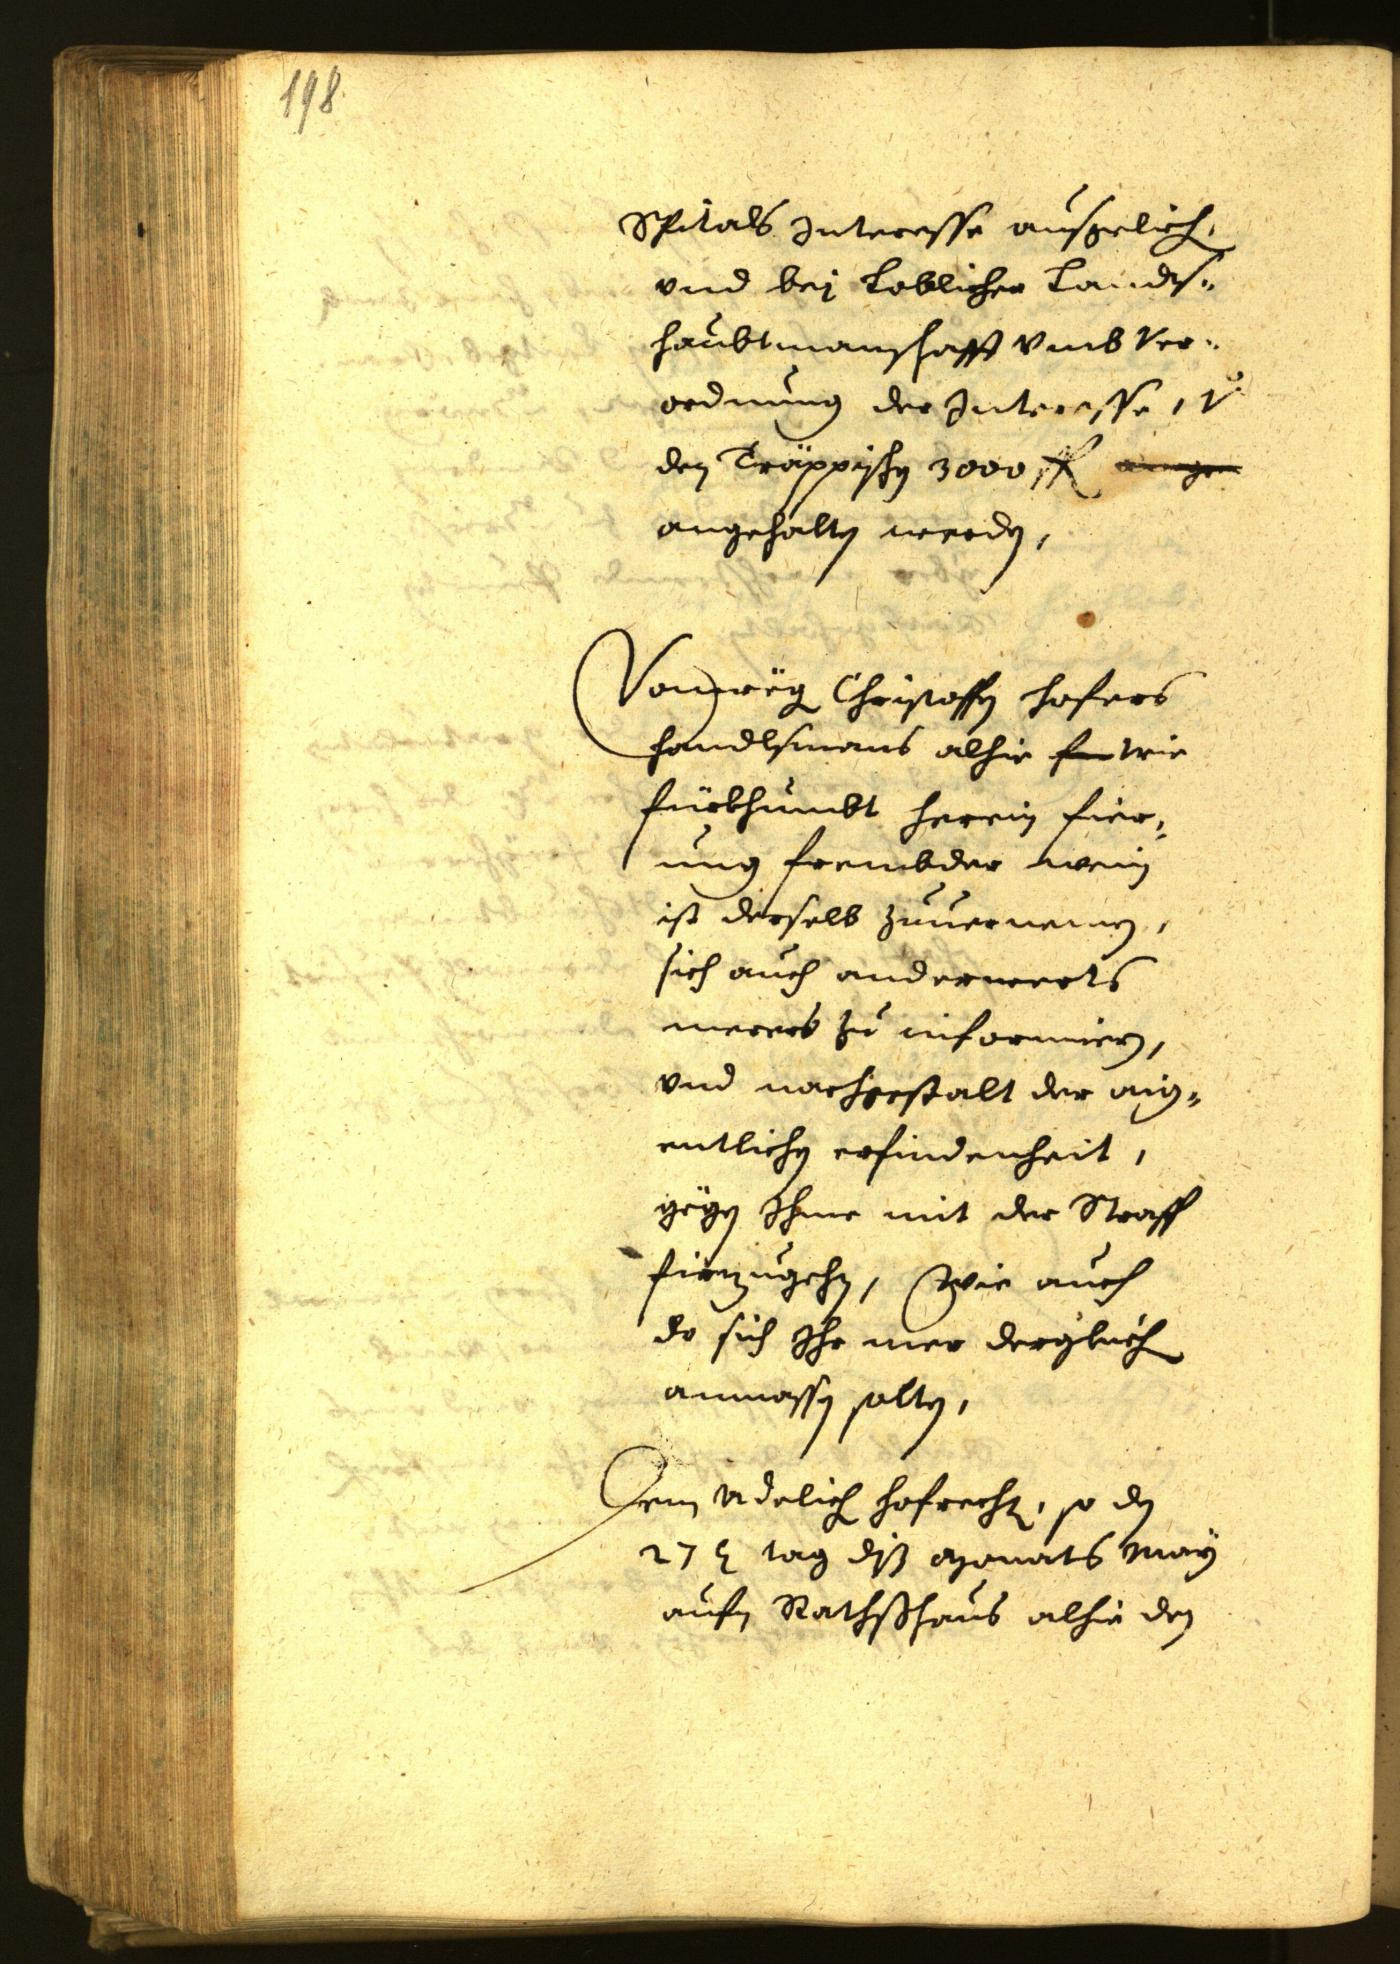 198
Spitals Interesse ausgelich,
vnd bej Loblicher Landts¬
haubtmanschafft vmb Ver¬
ordnung der Interesse,
den Träppischn 3000 fl
angehaltn werdn,
Vonwegn Christoffn Hofers
Handlsmans alhie wie
fürkhumbt herein fier¬
ung frembder wein
ist derselb zuuernemen,
sich auch anderwerts
merers zu informiern,
vnd nachgestalt der aig¬
entlichn erfindenheit,
gegn Ihme mit der Straff
fürzugehn, wie auch
do sich Ihr mer dergleich
anmassn soltn,
Dem Adelich hofrecht, so dn
27 tag diß Monats Maÿ
aufn Rathßhaus alhie den